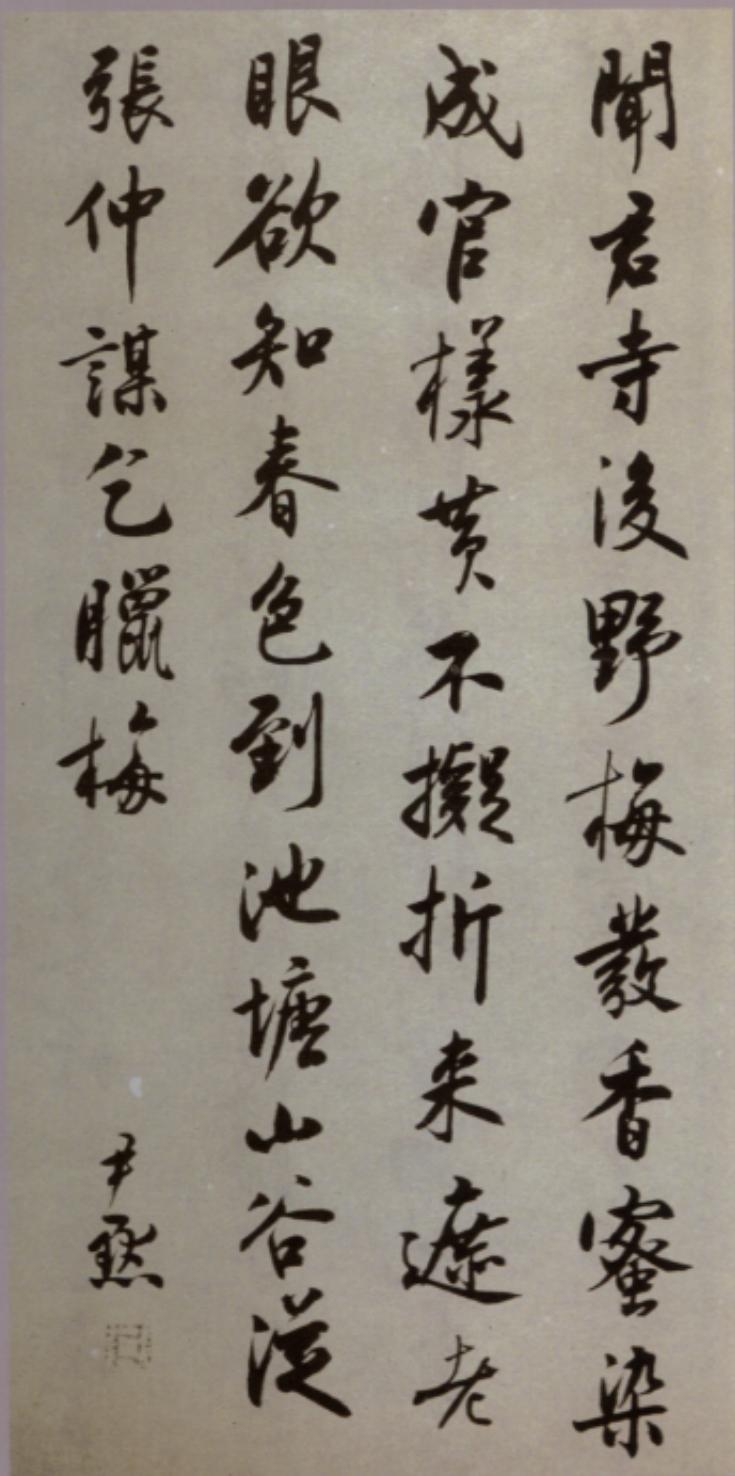 聞君寺後野梅發香蜜染
成官樣黃不擬折来遮老
眼欲知春色到池塘山谷從
張仲謀乞臘梅
尹默